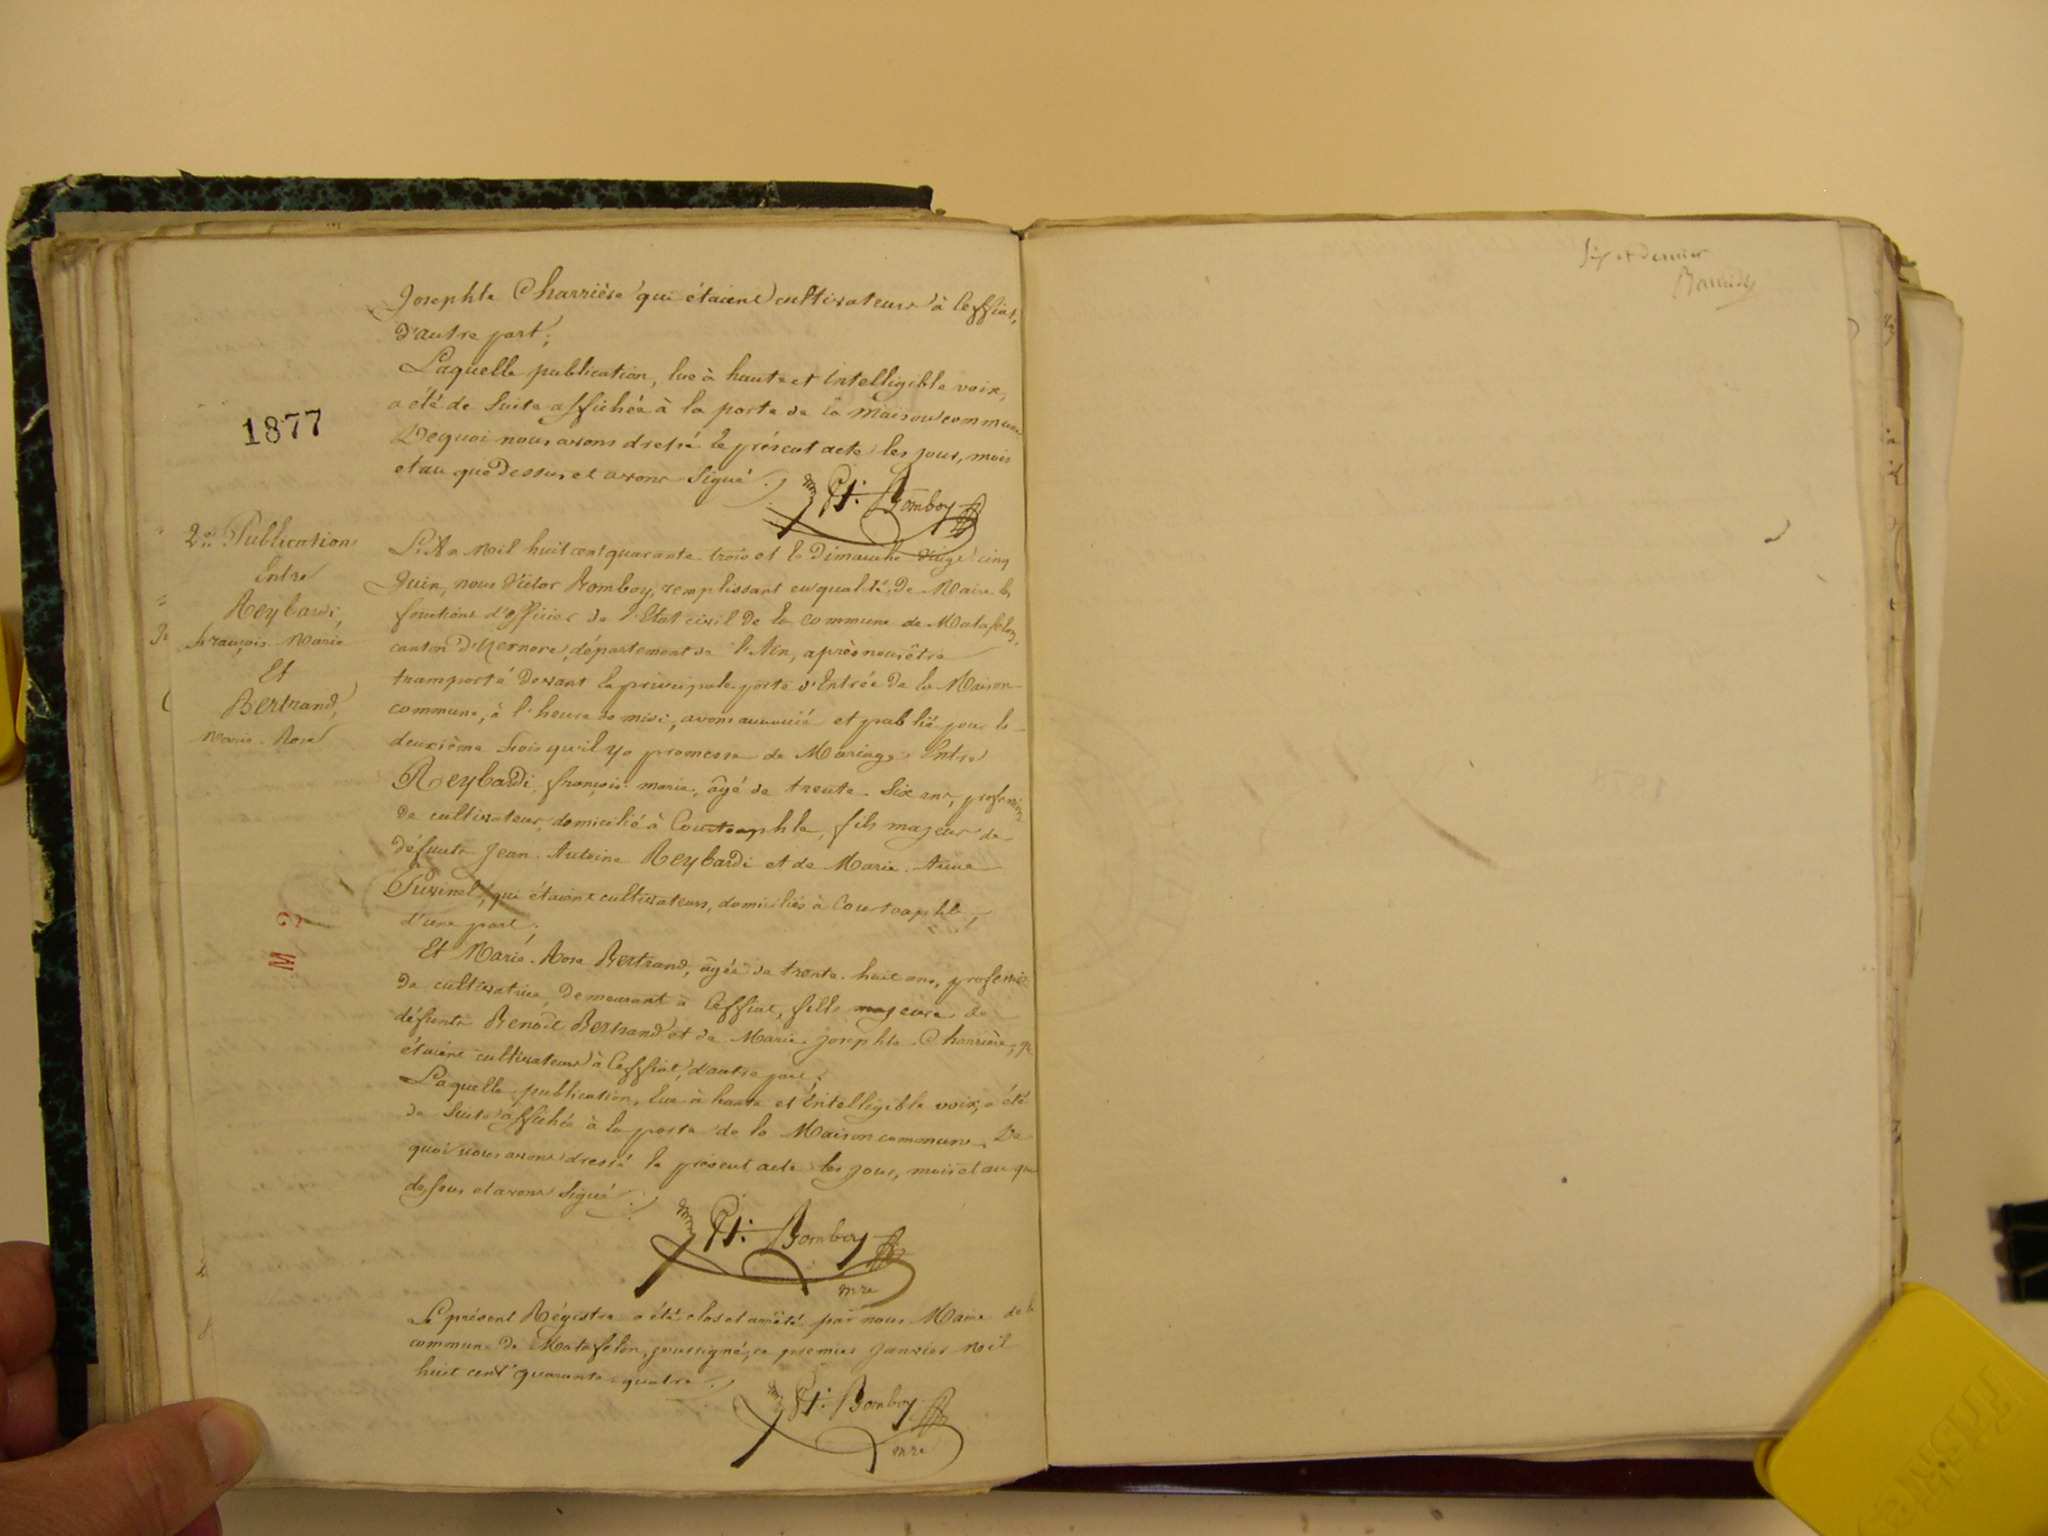 Josephte Charrière qui étaient cultivateurs à Ceffiat,
d'autre part;
Laquelle publication, lue à haute et intelligible voix,
a été de suite affichée à la porte de la Maison commune
Dequoi nous avons dressé le présent acte les jour, mois
et an que dessus et avons signé.
Pt. Bomboy
1877
2e Publication
Entre
Reybard,
françois-Marie
Et
Bertrand,
Marie-Rose
L'An Mil huit cent quarante-trois et le Dimanche vingt cinq
Juin, nous Victor Bomboy, remplissant en qualité de Maire les
fonctions d'officier de l'Etat civil de la commune de Matafelon,
canton d'Izernore, département de l'Ain, après nous être
transporté devant la principale porte d'Entrée de la Maison
commune, à l'heure de midi, avons annoncé et publié pour la
deuxième fois qu'il y a promesse de Mariage Entre
Reybardi, françois-marie, âgé de trente-Six ans, profession
de cultivateur, domicilié à Courtouphle, fils majeur de
défunts Jean-Antoine Reybardi et de Marie-Anne
qui étaient cultivateurs, domiciliés à Courtouphle,
d'une part;
Et Marie-Rose Bertrand, âgée de trente-huit ans, profession
de cultivatrice, demeurant à Ceffiat, fille majeure de
défunts Benoît Bertrand et de Marie-josephte Charrière, qui
étaient cultivateurs à Ceffiat, d'autre part;
Laquelle publication, lue à haute et intelligible voix, a été
de suite affichée à la porte de la Maison commune. De
quoi nous avons dressé le présent acte les jour, mois et an que
dessus et avons signé.
Pt. Bomboy
mre
Le présent Régistre a été clos et arrêté par nous Maire de la
commune de Matafelon, soussigné, ce premier Janvier Mil
huit cent quarante-quatre.
Pt. Bomboy
mre
M 2
Six et dernier